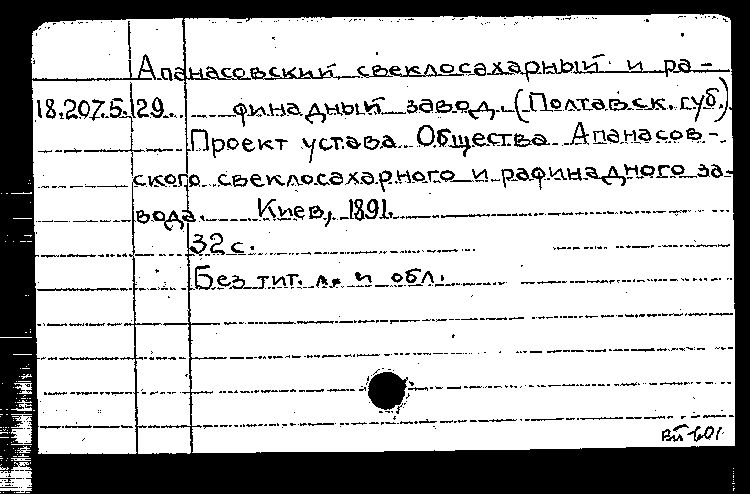 Апанасовский свеклосахарный и ра-
18.207.5.129. финадный завод. (Полтавск. губ.)
Проект устава Общества Апанасов-
ского свеклосахарного и рафинадного за-
вода. Киев, 1891.
32 с.
Без тит. л. и обл.